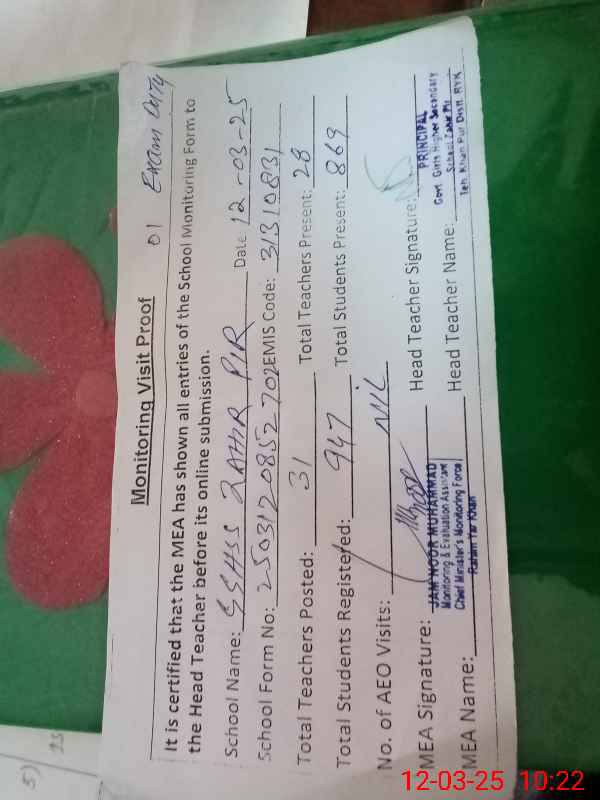 01 Exam Duty
Monitoring Visit Proof
It is certified that the MEA has shown all entries of the School Monitoring Form to
the Head Teacher before its online submission.
School Name: GGHSS ZAHIR PIR Date 12-03-25
School Form No: 2503120852702 EMIS Code: 31310831
Total Teachers Posted: 31 Total Teachers Present: 28
Total Students Registered: 947 Total Students Present: 869
No. of AEO Visits: NIL
MEA Signature: Head Teacher Signature:
JAM NOOR MUHAMMAD
Monitoring & Evaluation Assistant
Chief Minister's Monitoring Force
Rahim Yar Khan
PRINCIPAL
Govt. Girls Higher Secondary
School Zahir Pir
Teh. Khan Pur Distt. RYK
MEA Name: Head Teacher Name:
5)
23
12-03-25 10:22